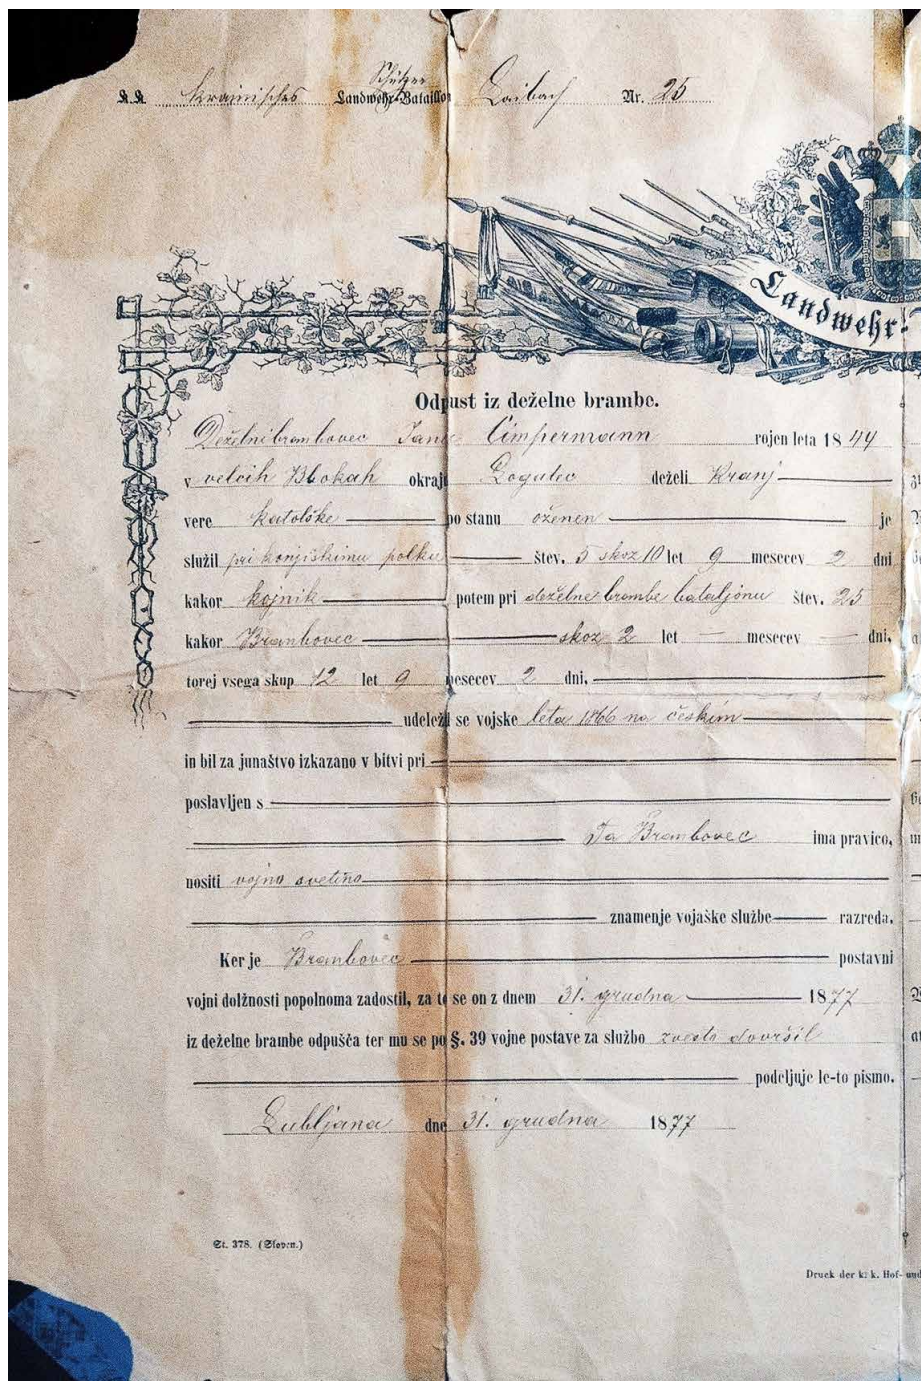 k. k. krainisches Schützen Landwehr-Bataillon Laibach Nr. 25
Landwehr-
Odpust iz deželne brambe.
Deželni brambovec Cimpermann rojen leta 1844
v velcih Blokah okraji Logatec deželi Kranj
vere katolške po stanu oženen je
služil pri konjiškimu polku štev. 5 skoz 10 let 9 mesecev 2 dni
kakor kojnik potem pri deželne brambe bataljonu štev. 25
kakor Brambovec skoz 2 let mesecev dni,
torej vsega skup 12 let 9 mesecev 2 dni,
udeleži se vojske leta 1866 na českim
in bil za junaštvo izkazano v bitvi pri
poslavljen s
Ta Brambovec ima pravico,
nositi vojno svetino
znamenje vojaške službe razreda.
Ker je Brambovec postavni
vojni dolžnosti popolnoma zadostil, za to se on z dnem 31. grudna 1877
iz deželne brambe odpušča ter mu se po §. 39 vojne postave za službo zvesto dovršil
podeljuje le-to pismo.
Lubljana dne 31. grudna 1877
St. 378. (Sloven.)
Druck der k. k. Hof- und